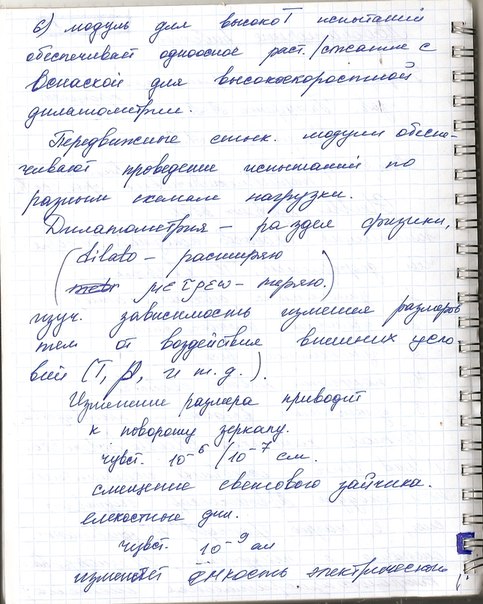 6) модуль для высокоT испытаний
обеспечивает одноосное раст./сжатие с
оснаской для высокоскоростной
дилатометрии.
Передвижные стык. модули обеспе-
чивают проведение испытаний по
разным схемам нагрузки.
Дилатометрия – раздел физики,
(dilato – расширяю
μετρεω – меряю.)
изуч. зависимость изменен размеров
тел от воздействия внешних усло-
вий (T, p, и т.д.).
Изменение размера приводит
к повороту зеркалу.
чувст. 10⁻⁶/10⁻⁷ см.
смещение светового зайчика.
емкостные дил.
чувст. 10⁻⁹ см
изменяет ёмкость электрический